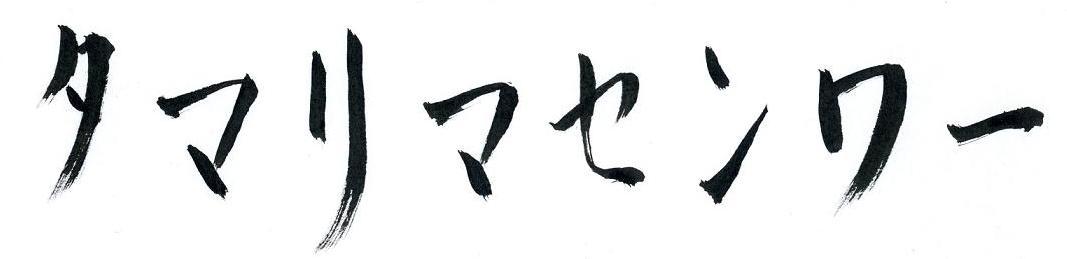 タマリマセンワー